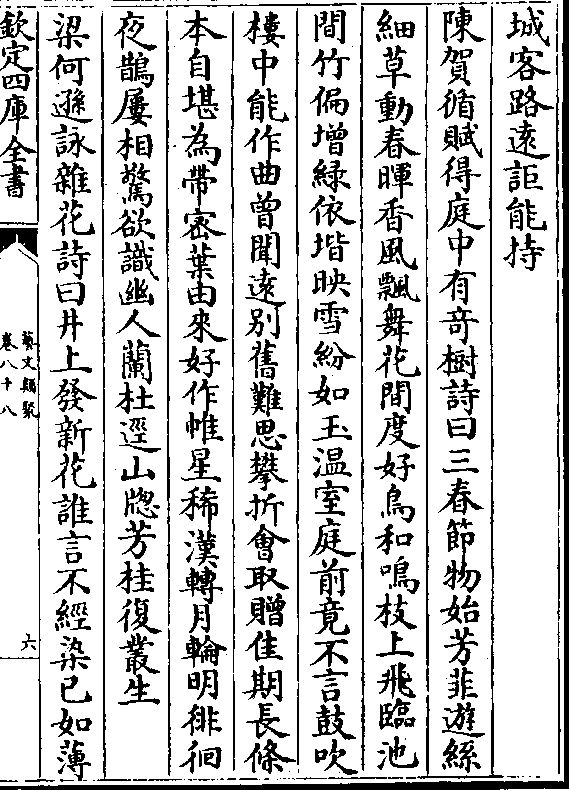 城客路遠詎能持
陳賀循賦得庭中有竒樹詩曰三春節物始芳菲遊絲
細草動春暉香風飄舞花間度好鳥和鳴枝上飛臨池
間竹偏增緑依堦映雪紛如玉温室庭前竟不言鼓吹
樓中能作曲曾聞遠别舊難思攀折㑹取贈佳期長條
本自堪為帶宻葉由來好作帷星稀漢轉月輪明徘徊
夜鵲屢相驚欲識幽人蘭杜逕山牕芳桂復叢生
梁何遜詠雜花詩曰井上發新花誰言不經染已如薄
欽定四庫全書
藝文類聚
卷八十八
六